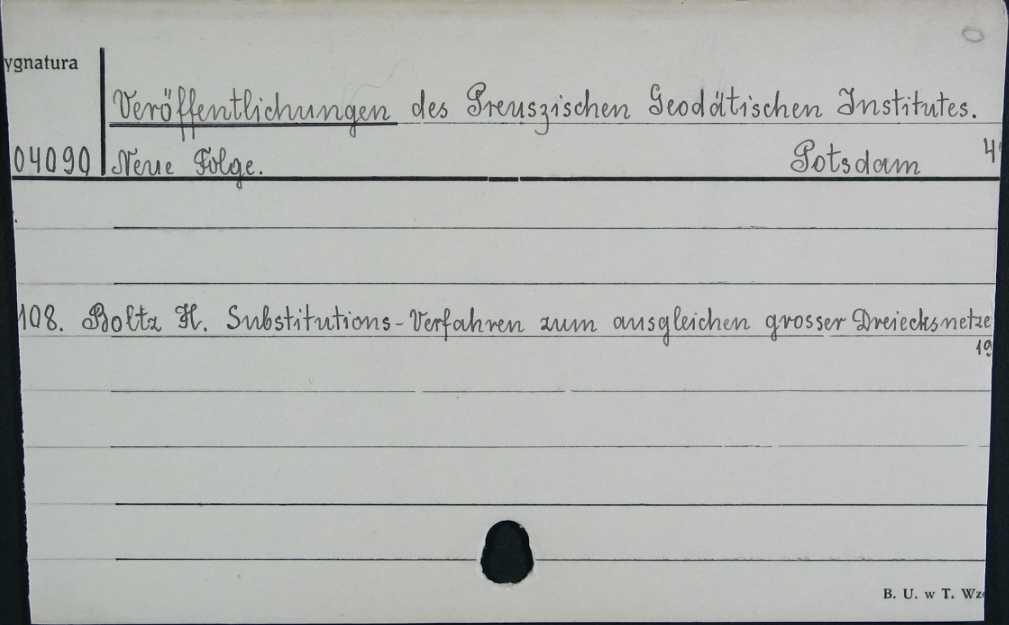 ygnatura
Veröffentlichungen des Preuszischen Geodätischen Institutes.
04090 Neue Folge. Potsdam 4°
108. Boltz H. Substitutions-Verfahren zum ausgleichen grosser Dreiecksnetze
19
B. U. w T. Wz